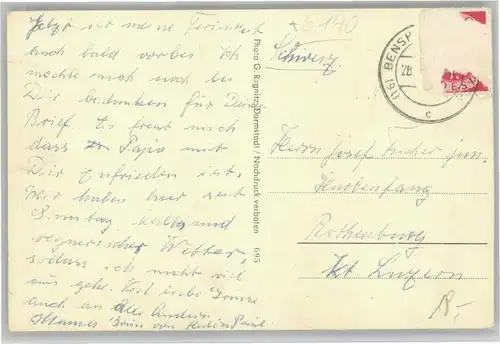 Jetzt ist meine Ferienzeit
auch bald vorbei. Ich
möchte mich noch bei
Dir bedanken für Deinen
Brief. Es freut mich
dass Papa mit
Dir zufrieden ist.
Wir haben hier seit
Sonntag kaltes und
regnerisches Wetter,
sodass ich nicht viel
aus gehe. Viel liebe Grüsse
auch an alle Andern
Photo G. Regnitz, Darmstadt / Nachdruck verboten
695
6140
Schweiz
(16) BENSH
28.
c
Herrn Josef Fischer jun.
Rothenburg
Kt Luzern